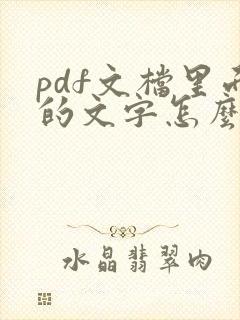 pdf文檔里
的文字怎麼
水晶翡翠肉